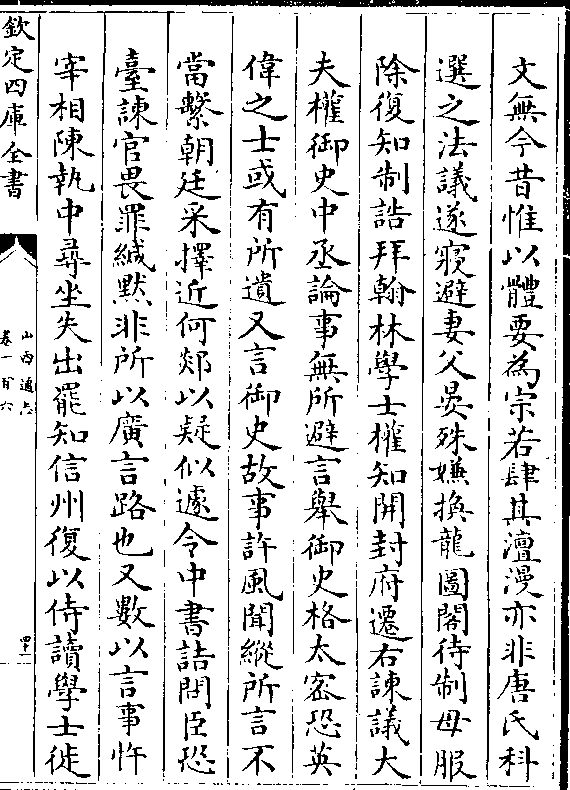 文無今昔惟以體要為宗若肆其澶漫亦非唐氏科
選之法議遂寢避妻父晏殊嫌換龍圖閣待制母服
除復知制誥拜翰林學士權知開封府遷右諫議大
夫權御史中丞論事無所避言舉御史格太宻恐英
偉之士或有所遺又言御史故事許風聞縱所言不
當繫朝廷采擇近何郯以疑似遽令中書詰問臣恐
臺諫官畏罪緘默非所以廣言路也又數以言事忤
宰相陳執中尋坐失出罷知信州復以侍讀學士徙
欽定四庫全書
山西通志
卷一百六